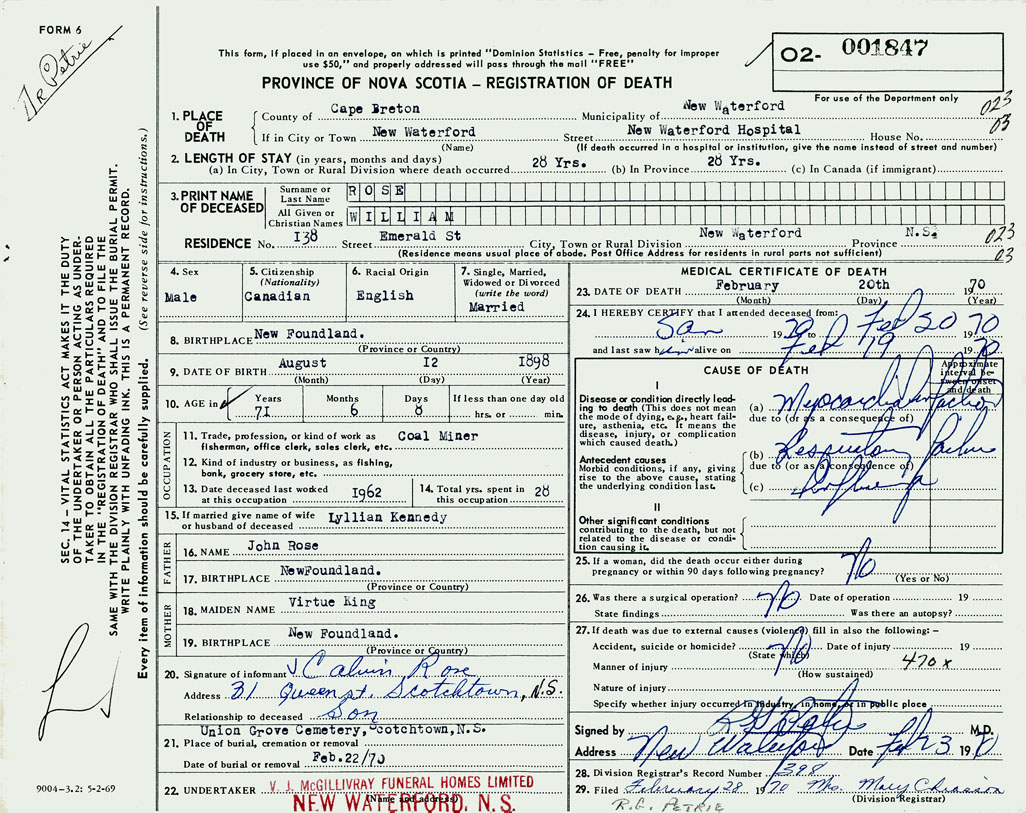 FORM 6
Dr Petrie
This form, if placed in an envelope, on which is printed "Dominion Statistics – Free, penalty for improper
use $50," and properly addressed will pass through the mail "FREE"
PROVINCE OF NOVA SCOTIA – REGISTRATION OF DEATH
O2- 001847
For use of the Department only
023
03
1. PLACE OF DEATH
County of Cape Breton Municipality of New Waterford
If in City or Town New Waterford Street New Waterford Hospital House No.
(Name) (If death occurred in a hospital or institution, give the name instead of street and number)
2. LENGTH OF STAY (in years, months and days)
(a) In City, Town or Rural Division where death occurred 28 Yrs. (b) In Province 28 Yrs. (c) In Canada (if immigrant)
3. PRINT NAME OF DECEASED
Surname or Last Name ROSE
All Given or Christian Names WILLIAM
RESIDENCE No. 138 Street Emerald St City, Town or Rural Division New Waterford Province N.S.
023
03
(Residence means usual place of abode. Post Office Address for residents in rural parts not sufficient)
4. Sex
Male
5. Citizenship
(Nationality)
Canadian
6. Racial Origin
English
7. Single, Married,
Widowed or Divorced
(write the word)
Married
8. BIRTHPLACE New Foundland.
(Province or Country)
9. DATE OF BIRTH August 12 1898
(Month) (Day) (Year)
10. AGE in Years 71 Months 6 Days 8 If less than one day old
hrs. or min.
OCCUPATION
11. Trade, profession, or kind of work as Coal Miner
fisherman, office clerk, sales clerk, etc.
12. Kind of industry or business, as fishing,
bank, grocery store, etc.
13. Date deceased last worked
at this occupation 1962
14. Total yrs. spent in
this occupation 28
15. If married give name of wife
or husband of deceased Lyllian Kennedy
FATHER
16. NAME John Rose
17. BIRTHPLACE NewFoundland.
(Province or Country)
MOTHER
18. MAIDEN NAME Virtue King
19. BIRTHPLACE New Foundland.
(Province or Country)
20. Signature of informant J Calvin Rose
Address 31 Queen st. Scotchtown, N.S.
Relationship to deceased Son
Union Grove Cemetery, Scotchtown, N.S.
21. Place of burial, cremation or removal
Date of burial or removal Feb.22/70
22. UNDERTAKER V. J. McGILLIVRAY FUNERAL HOMES LIMITED
(Name and address)
NEW WATERFORD, N. S.
MEDICAL CERTIFICATE OF DEATH
23. DATE OF DEATH February 20th 1970
(Month) (Day) (Year)
24. I HEREBY CERTIFY that I attended deceased from:
Jan 1970 to Feb 20 1970
and last saw him alive on Feb 19 1970
CAUSE OF DEATH
Approximate
interval be-
tween onset
and death
I
Disease or condition directly lead-
ing to death (This does not mean
the mode of dying, e.g., heart fail-
ure, asthenia, etc. It means the
disease, injury, or complication
which caused death.)
(a) Myocardial Infarction
due to (or as a consequence of)
Antecedent causes
Morbid conditions, if any, giving
rise to the above cause, stating
the underlying condition last.
(b) Respiratory Failure
due to (or as a consequence of)
(c) Influenza
II
Other significant conditions
contributing to the death, but not
related to the disease or condi-
tion causing it.
25. If a woman, did the death occur either during
pregnancy or within 90 days following pregnancy? No
(Yes or No)
26. Was there a surgical operation? No Date of operation 19
State findings Was there an autopsy?
27. If death was due to external causes (violence) fill in also the following: –
Accident, suicide or homicide? No Date of injury 19
(State which)
Manner of injury 470x
(How sustained)
Nature of injury
Specify whether injury occurred in industry, in home, or in public place
Signed by M.D.
Address New Waterford Date Feb 23 1970
28. Division Registrar's Record Number 398
29. Filed February 28 1970 Mrs. Mary Chiasson
(Division Registrar)
R.G. PETRIE
SEC. 14 – VITAL STATISTICS ACT MAKES IT THE DUTY
OF THE UNDERTAKER OR PERSON ACTING AS UNDER-
TAKER TO OBTAIN ALL THE PARTICULARS REQUIRED
IN THE "REGISTRATION OF DEATH" AND TO FILE THE
SAME WITH THE DIVISION REGISTRAR WHO SHALL ISSUE THE BURIAL PERMIT.
WRITE PLAINLY WITH UNFADING INK. THIS IS A PERMANENT RECORD.
Every item of information should be carefully supplied. (See reverse side for instructions.)
9004–3.2: 5-2-69